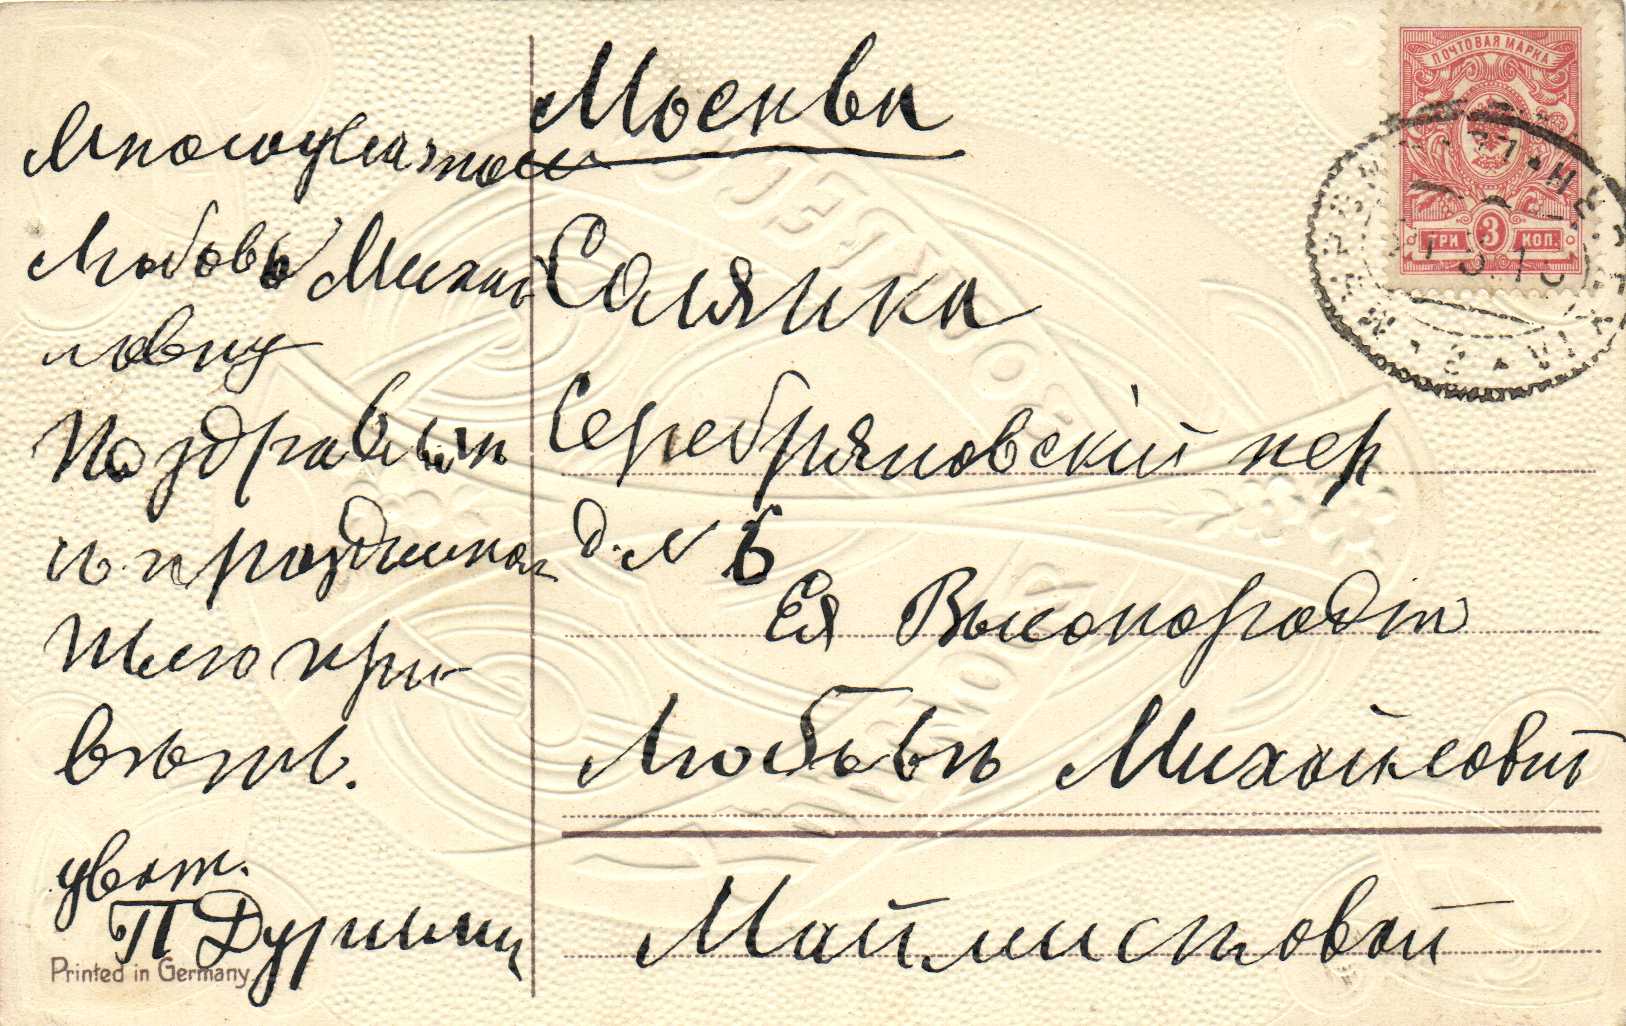 Многоуважаем
Любовь Михаи
ловну
Поздравляю
съ праздником
Шлю при
вѣтъ.
уваж.
П
Printed in Germany
Москва
Солянка
Серебряновский пер
д. № 6
Ея Высокородiю
Любовь Михайловнѣ
Майлистовой
ПОЧТОВАЯ МАРКА
ТРИ 3 КОП.